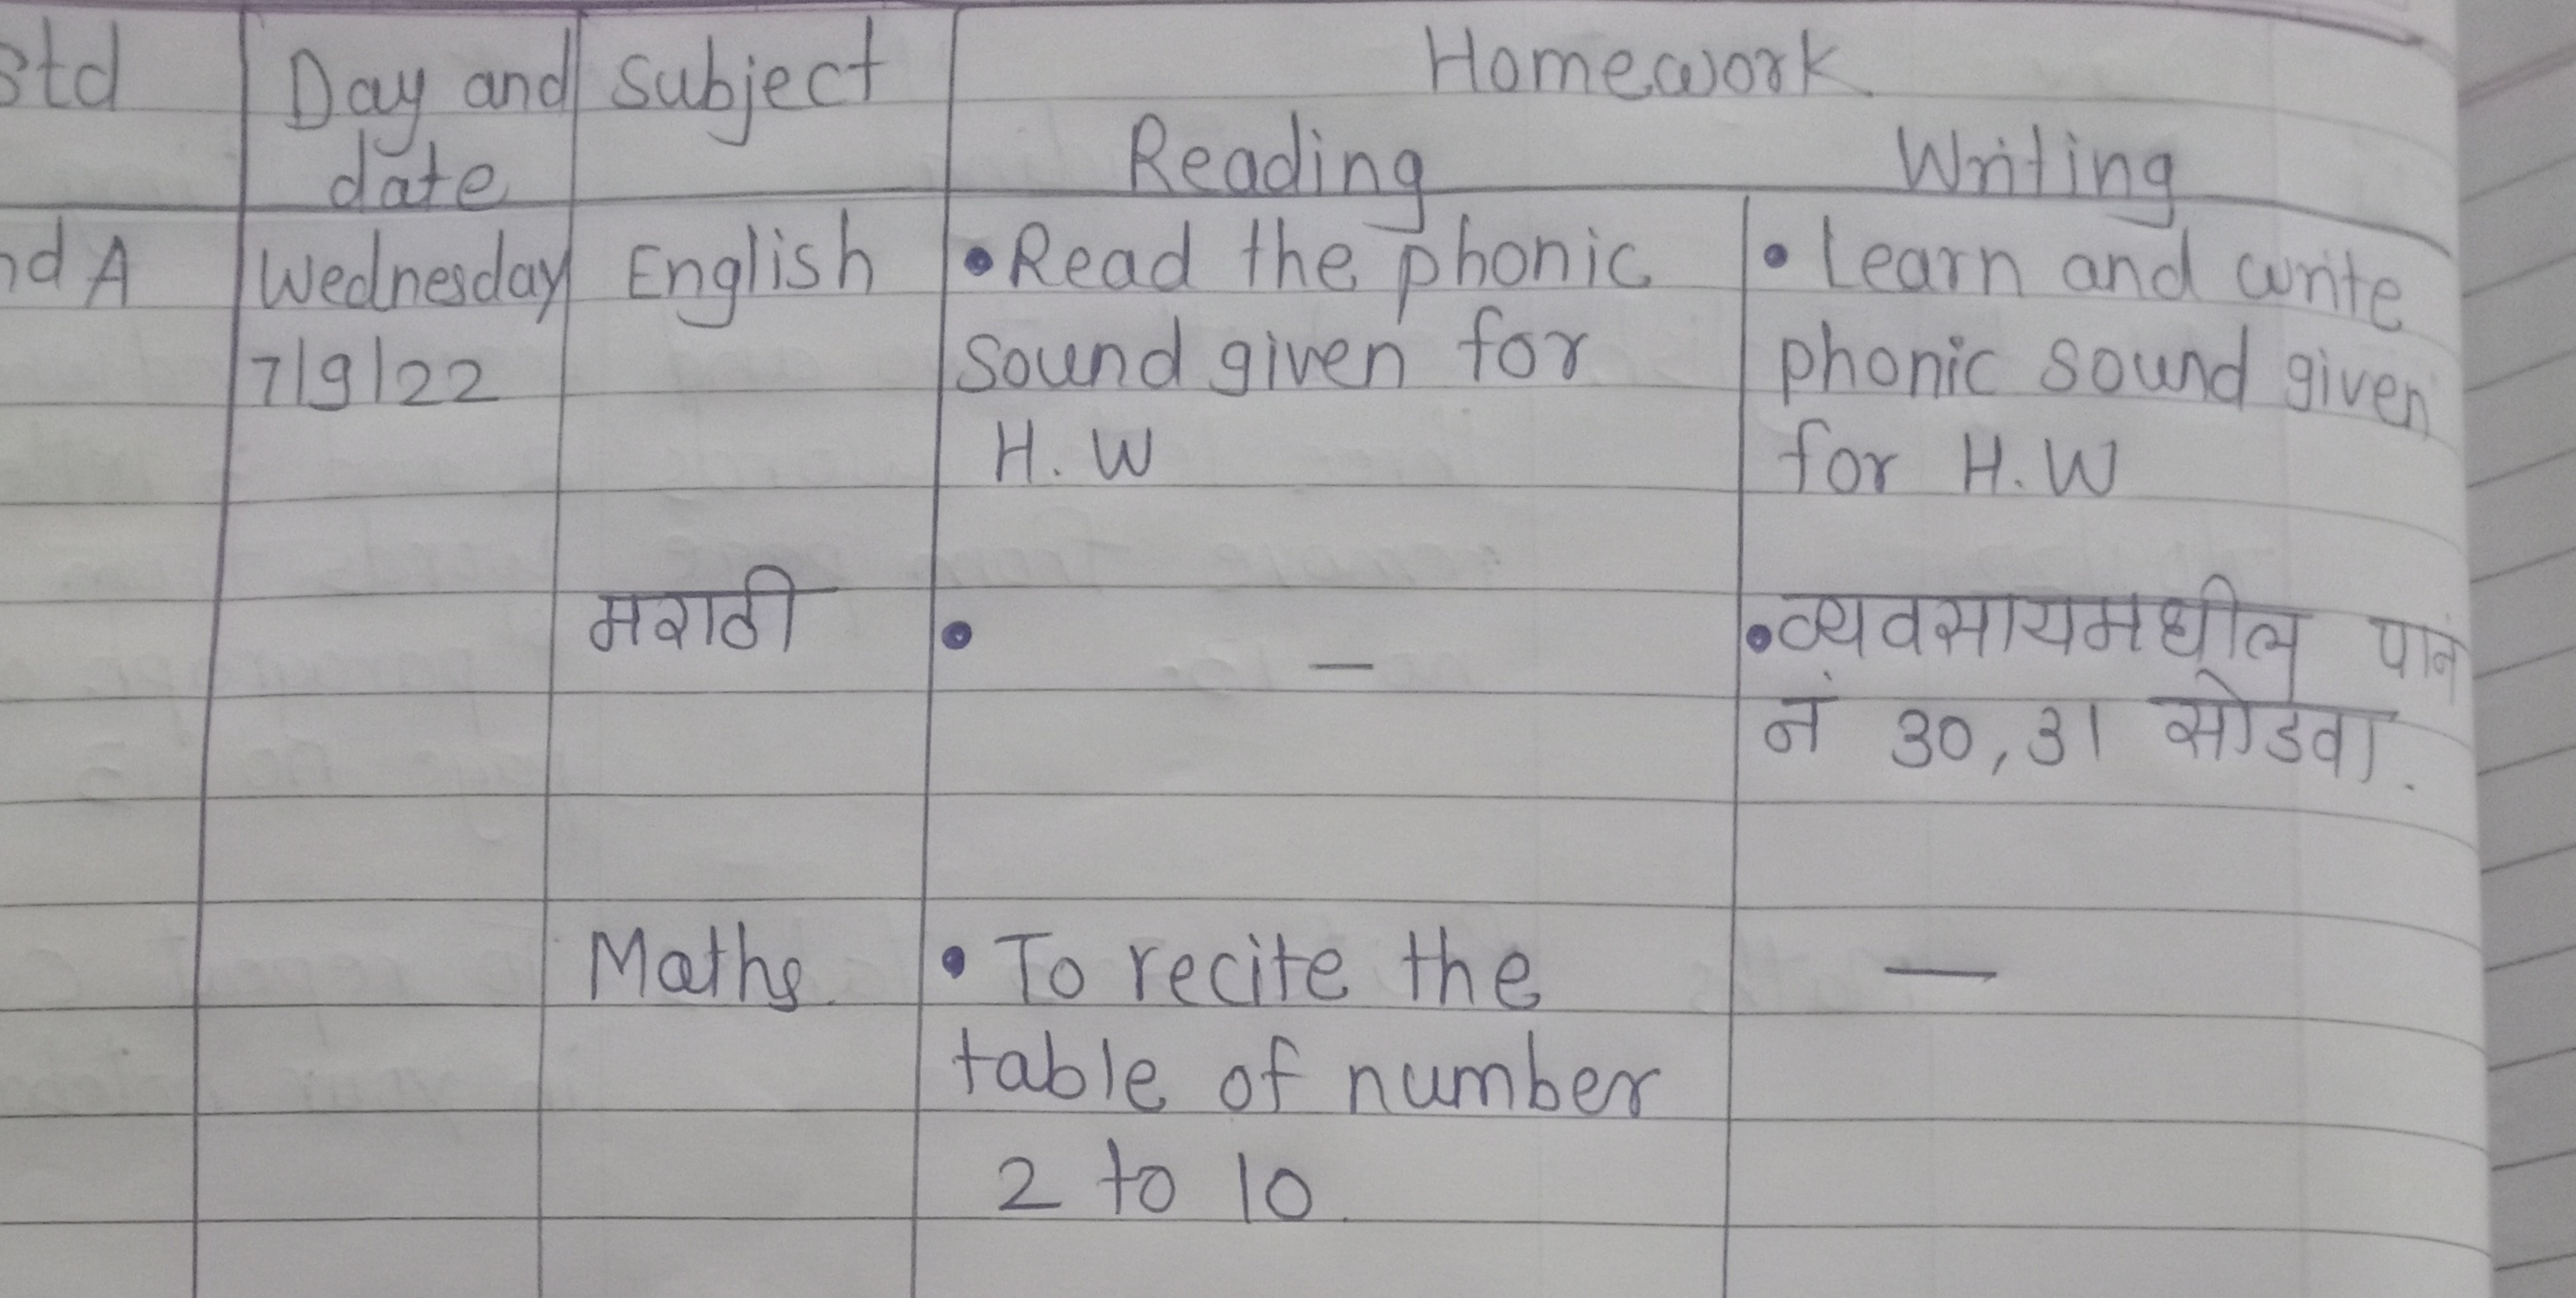 Std Day and Subject Homework
date Reading Writing
nd A Wednesday English • Read the phonic • Learn and write
7/9/22 sound given for phonic sound given
H.W for H.W
मराठी • — • व्यवसायमधील पान
नं 30, 31 सोडवा.
Maths • To recite the —
table of number
2 to 10